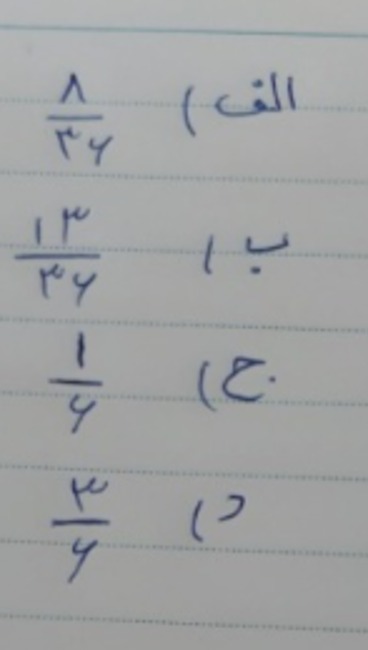 الف) ۸/۳۶
ب) ۱۳/۳۶
ج) ۱/۶
د) ۳/۶